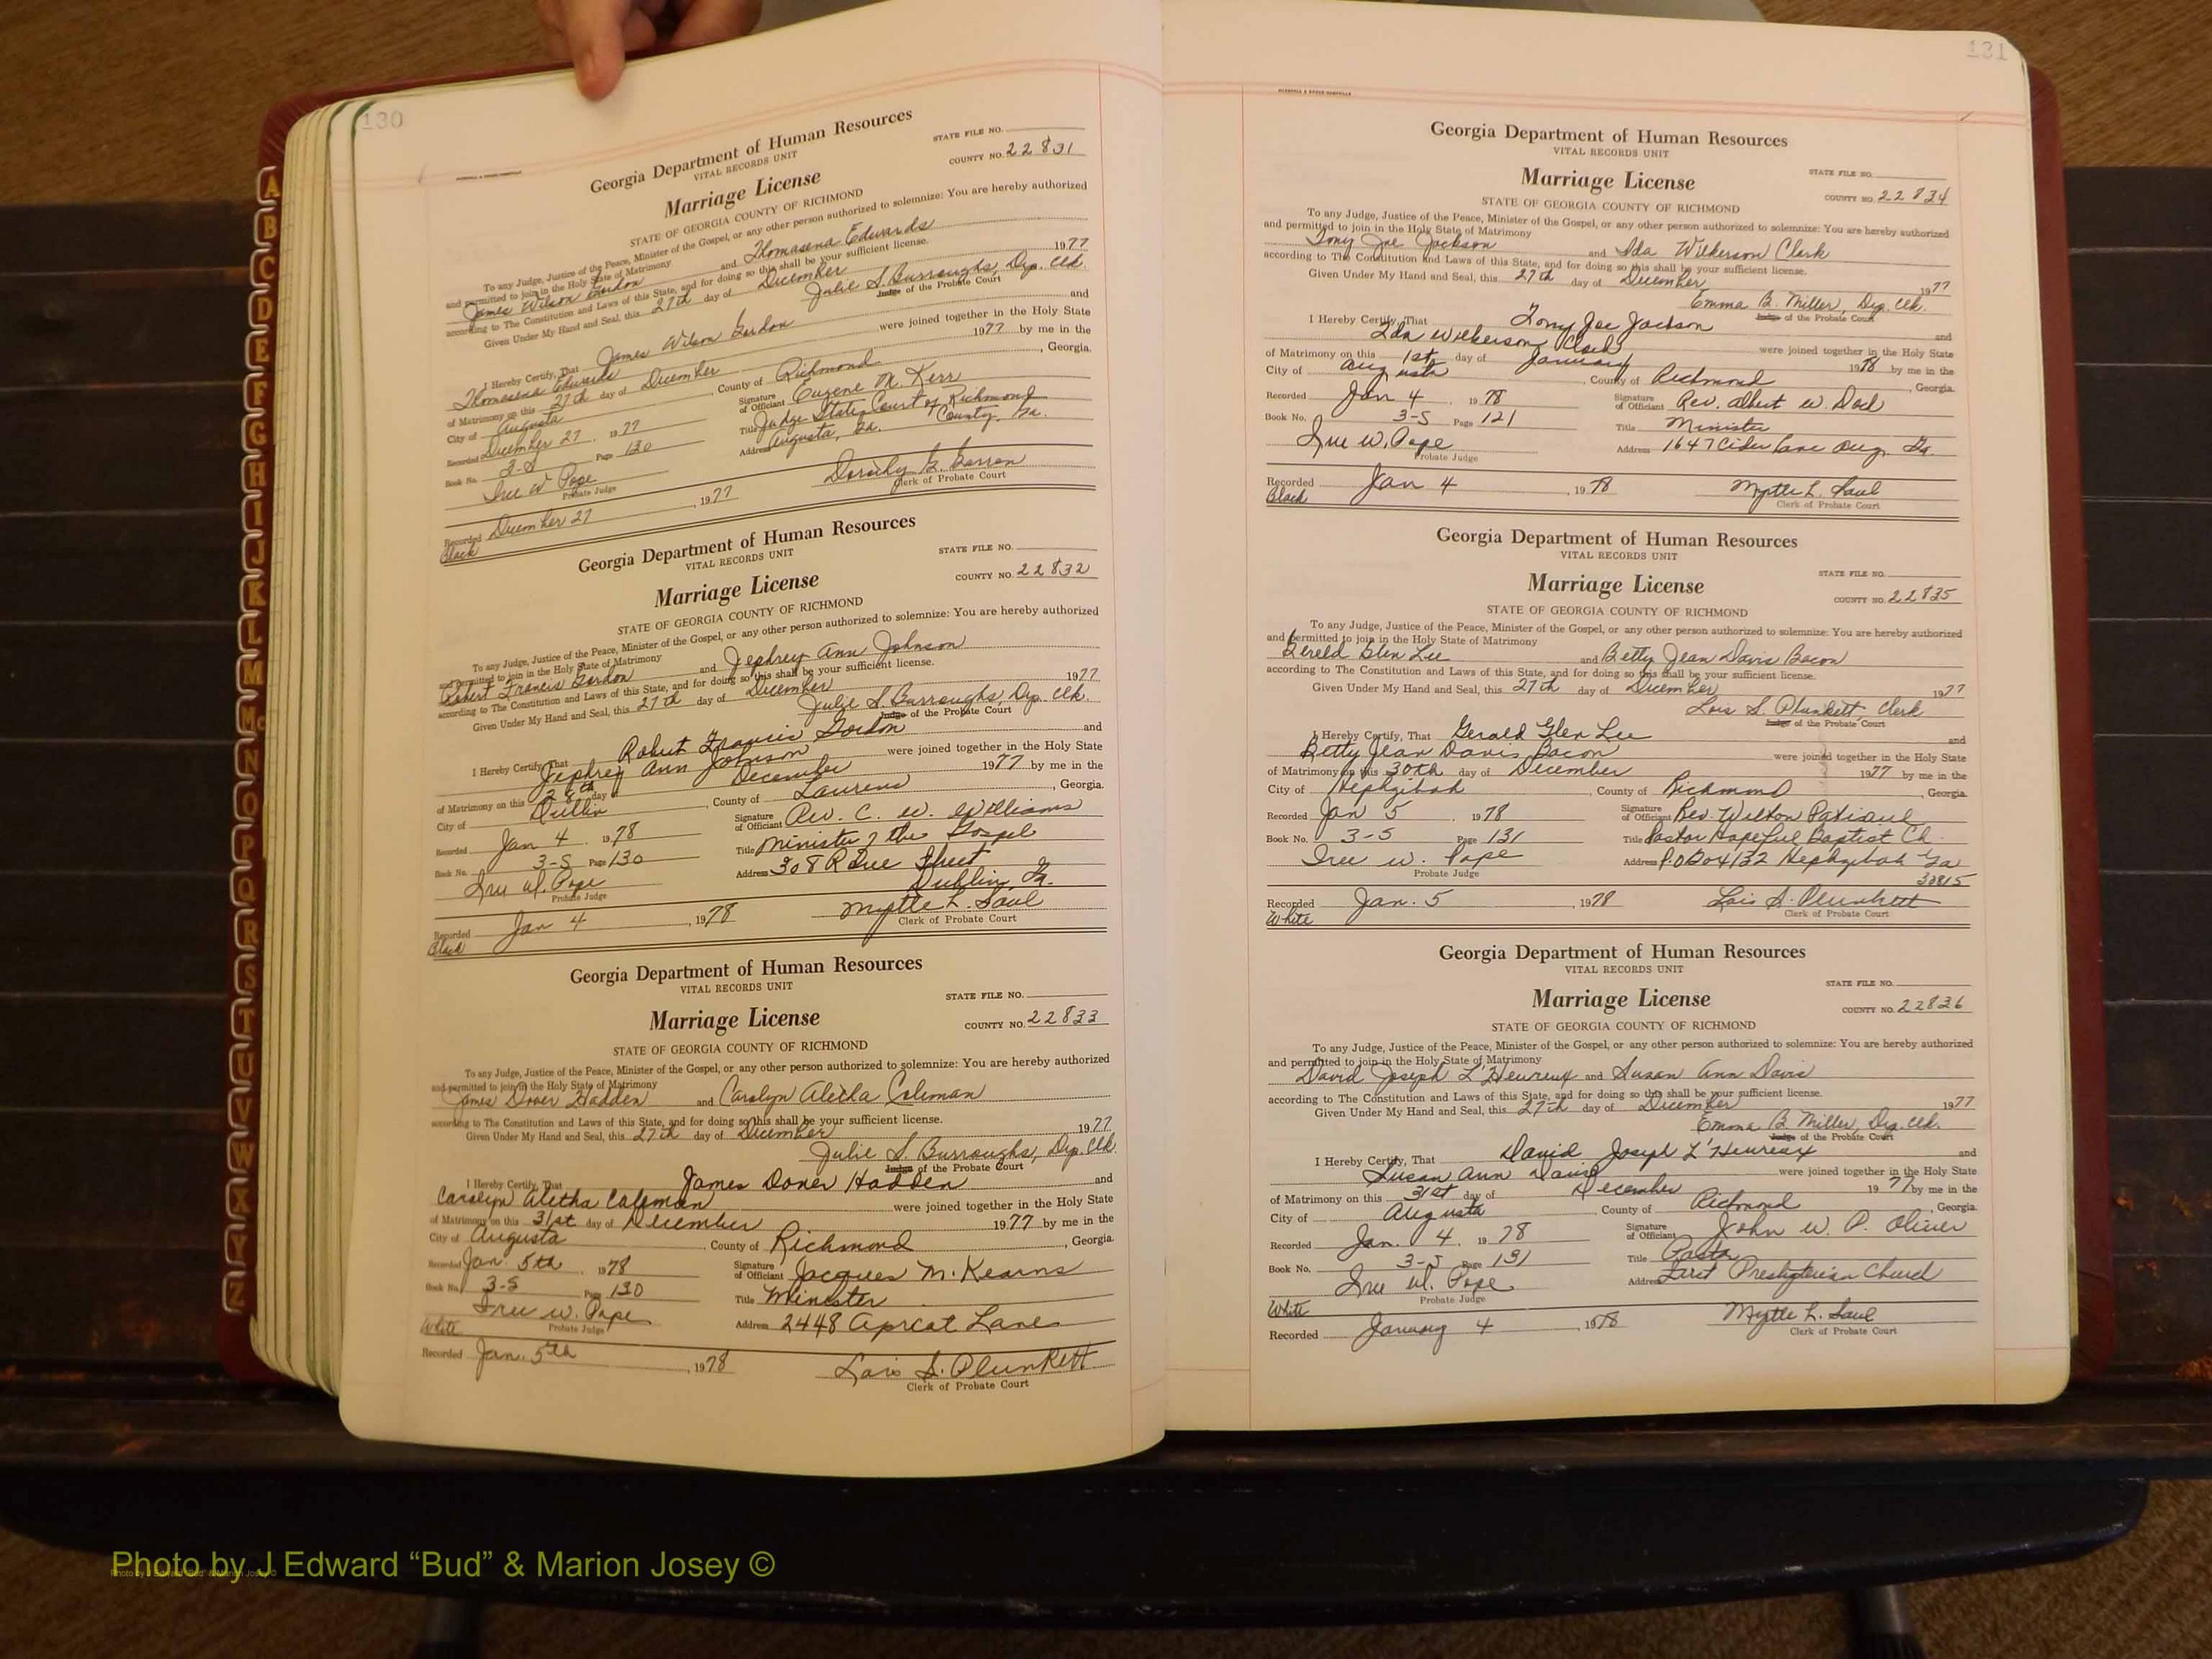 130
Georgia Department of Human Resources
VITAL RECORDS UNIT
STATE FILE NO.
COUNTY NO. 22831
Marriage License
STATE OF GEORGIA COUNTY OF RICHMOND
To any Judge, Justice of the Peace, Minister of the Gospel, or any other person authorized to solemnize: You are hereby authorized
and permitted to join in the Holy State of Matrimony
James Wilson Gordon and Thomasena Edwards
according to The Constitution and Laws of this State, and for doing so this shall be your sufficient license.
Given Under My Hand and Seal, this 27th day of December 1977
Julie S. Burroughs, Dep. Clk.
Judge of the Probate Court
I Hereby Certify, That James Wilson Gordon and
Thomasena Edwards were joined together in the Holy State
of Matrimony on this 27th day of December 1977 by me in the
City of Augusta, County of Richmond, Georgia.
Recorded December 27, 1977
Signature of Officiant Eugene M. Kerr
Book No. 3-S Page 130
Title Judge State Court of Richmond County, Ga.
Address Augusta, Ga.
Iree W. Pope
Probate Judge
Recorded December 27, 1977
Dorothy G. Barren
Clerk of Probate Court
Black
Georgia Department of Human Resources
VITAL RECORDS UNIT
STATE FILE NO.
COUNTY NO. 22832
Marriage License
STATE OF GEORGIA COUNTY OF RICHMOND
To any Judge, Justice of the Peace, Minister of the Gospel, or any other person authorized to solemnize: You are hereby authorized
and permitted to join in the Holy State of Matrimony
Robert Francis Gordon and Jephrey Ann Johnson
according to The Constitution and Laws of this State, and for doing so this shall be your sufficient license.
Given Under My Hand and Seal, this 27th day of December 1977
Julie S. Burroughs, Dep. Clk.
Judge of the Probate Court
I Hereby Certify, That Robert Francis Gordon and
Jephrey Ann Johnson were joined together in the Holy State
of Matrimony on this 28th day of December 1977 by me in the
City of Dublin, County of Laurens, Georgia.
Recorded Jan 4 1978
Signature of Officiant Rev. C. W. Williams
Book No. 3-S Page 130
Title Minister of the Gospel
Address 308 Rowe Street
Dublin, Ga.
Iree W. Pope
Probate Judge
Recorded Jan 4, 1978
Myrtle L. Saul
Clerk of Probate Court
Black
Georgia Department of Human Resources
VITAL RECORDS UNIT
STATE FILE NO.
COUNTY NO. 22833
Marriage License
STATE OF GEORGIA COUNTY OF RICHMOND
To any Judge, Justice of the Peace, Minister of the Gospel, or any other person authorized to solemnize: You are hereby authorized
and permitted to join in the Holy State of Matrimony
James Doner Hadden and Carolyn Aletha Coleman
according to The Constitution and Laws of this State, and for doing so this shall be your sufficient license.
Given Under My Hand and Seal, this 27th day of December 1977
Julie S. Burroughs, Dep. Clk.
Judge of the Probate Court
I Hereby Certify, That James Doner Hadden and
Carolyn Aletha Coleman were joined together in the Holy State
of Matrimony on this 31st day of December 1977 by me in the
City of Augusta, County of Richmond, Georgia.
Recorded Jan. 5th, 1978
Signature of Officiant Jacques M. Kearns
Book No. 3-S Page 130
Title Minister
Iree W. Pope
Probate Judge
Address 2448 Apricot Lane
White
Recorded Jan. 5th, 1978
Lois S. Plunkett
Clerk of Probate Court
131
Georgia Department of Human Resources
VITAL RECORDS UNIT
Marriage License
STATE FILE NO.
COUNTY NO. 22834
STATE OF GEORGIA COUNTY OF RICHMOND
To any Judge, Justice of the Peace, Minister of the Gospel, or any other person authorized to solemnize: You are hereby authorized
and permitted to join in the Holy State of Matrimony
Tony Joe Jackson and Ida Wilkerson Clark
according to The Constitution and Laws of this State, and for doing so this shall be your sufficient license.
Given Under My Hand and Seal, this 27th day of December 1977
Emma B. Miller, Dep. Clk.
Judge of the Probate Court
I Hereby Certify, That Tony Joe Jackson and
Ida Wilkerson Clark were joined together in the Holy State
of Matrimony on this 1st day of January 1978 by me in the
City of Augusta, County of Richmond, Georgia.
Recorded Jan 4 1978
Signature of Officiant Rev. Albert W.
Book No. 3-S Page 121
Title Minister
Iree W. Pope
Probate Judge
Address 1647 Cider Lane Aug. Ga.
Recorded Jan 4, 1978
Myrtle L. Saul
Clerk of Probate Court
Black
Georgia Department of Human Resources
VITAL RECORDS UNIT
Marriage License
STATE FILE NO.
COUNTY NO. 22835
STATE OF GEORGIA COUNTY OF RICHMOND
To any Judge, Justice of the Peace, Minister of the Gospel, or any other person authorized to solemnize: You are hereby authorized
and permitted to join in the Holy State of Matrimony
Gereld Glen Lee and Betty Jean Davis Bacon
according to The Constitution and Laws of this State, and for doing so this shall be your sufficient license.
Given Under My Hand and Seal, this 27th day of December 1977
Lois S. Plunkett, Clerk
Judge of the Probate Court
I Hereby Certify, That Gerald Glen Lee and
Betty Jean Davis Bacon were joined together in the Holy State
of Matrimony on this 30th day of December 1977 by me in the
City of Hephzibah, County of Richmond, Georgia.
Recorded Jan 5, 1978
Signature of Officiant Rev. Wilton
Book No. 3-S Page 131
Title Pastor Hopeful Baptist Ch.
Iree W. Pope
Probate Judge
Address P.O Box 132 Hephzibah Ga
30815
Recorded Jan. 5, 1978
Lois S. Plunkett
Clerk of Probate Court
White
Georgia Department of Human Resources
VITAL RECORDS UNIT
STATE FILE NO.
Marriage License
COUNTY NO. 22836
STATE OF GEORGIA COUNTY OF RICHMOND
To any Judge, Justice of the Peace, Minister of the Gospel, or any other person authorized to solemnize: You are hereby authorized
and permitted to join in the Holy State of Matrimony
David Joseph L'Heureux and Susan Ann Davis
according to The Constitution and Laws of this State, and for doing so this shall be your sufficient license.
Given Under My Hand and Seal, this 27th day of December 1977
Emma B. Miller, Dep. Clk.
Judge of the Probate Court
I Hereby Certify, That David Joseph L'Heureux and
Susan Ann Davis were joined together in the Holy State
of Matrimony on this 31st day of December 1977 by me in the
City of Augusta, County of Richmond, Georgia.
Recorded Jan. 4, 1978
Signature of Officiant John W. P. Oliver
Book No. 3-S Page 131
Title Pastor
Iree W. Pope
Probate Judge
Address First Presbyterian Church
White
Recorded January 4, 1978
Myrtle L. Saul
Clerk of Probate Court
A
B
C
D
E
F
G
H
I
J
K
L
M
Mc
N
O
P
Q
R
S
T
U
V
W
X
Y
Z
Photo by J Edward “Bud” & Marion Josey ©
Photo by J Edward "Bud" & Marion Josey ©